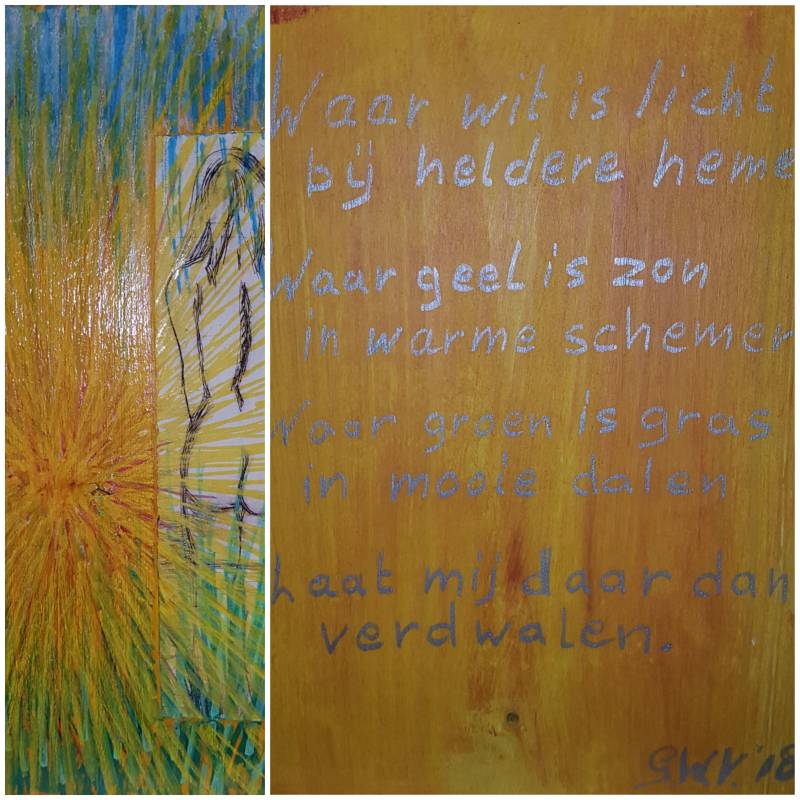 Waar wit is licht
bij heldere heme
Waar geel is zon
in warme schemer
Waar groen is gras
in mooie dalen
Laat mij daar dan
verdwalen.
GWV '18